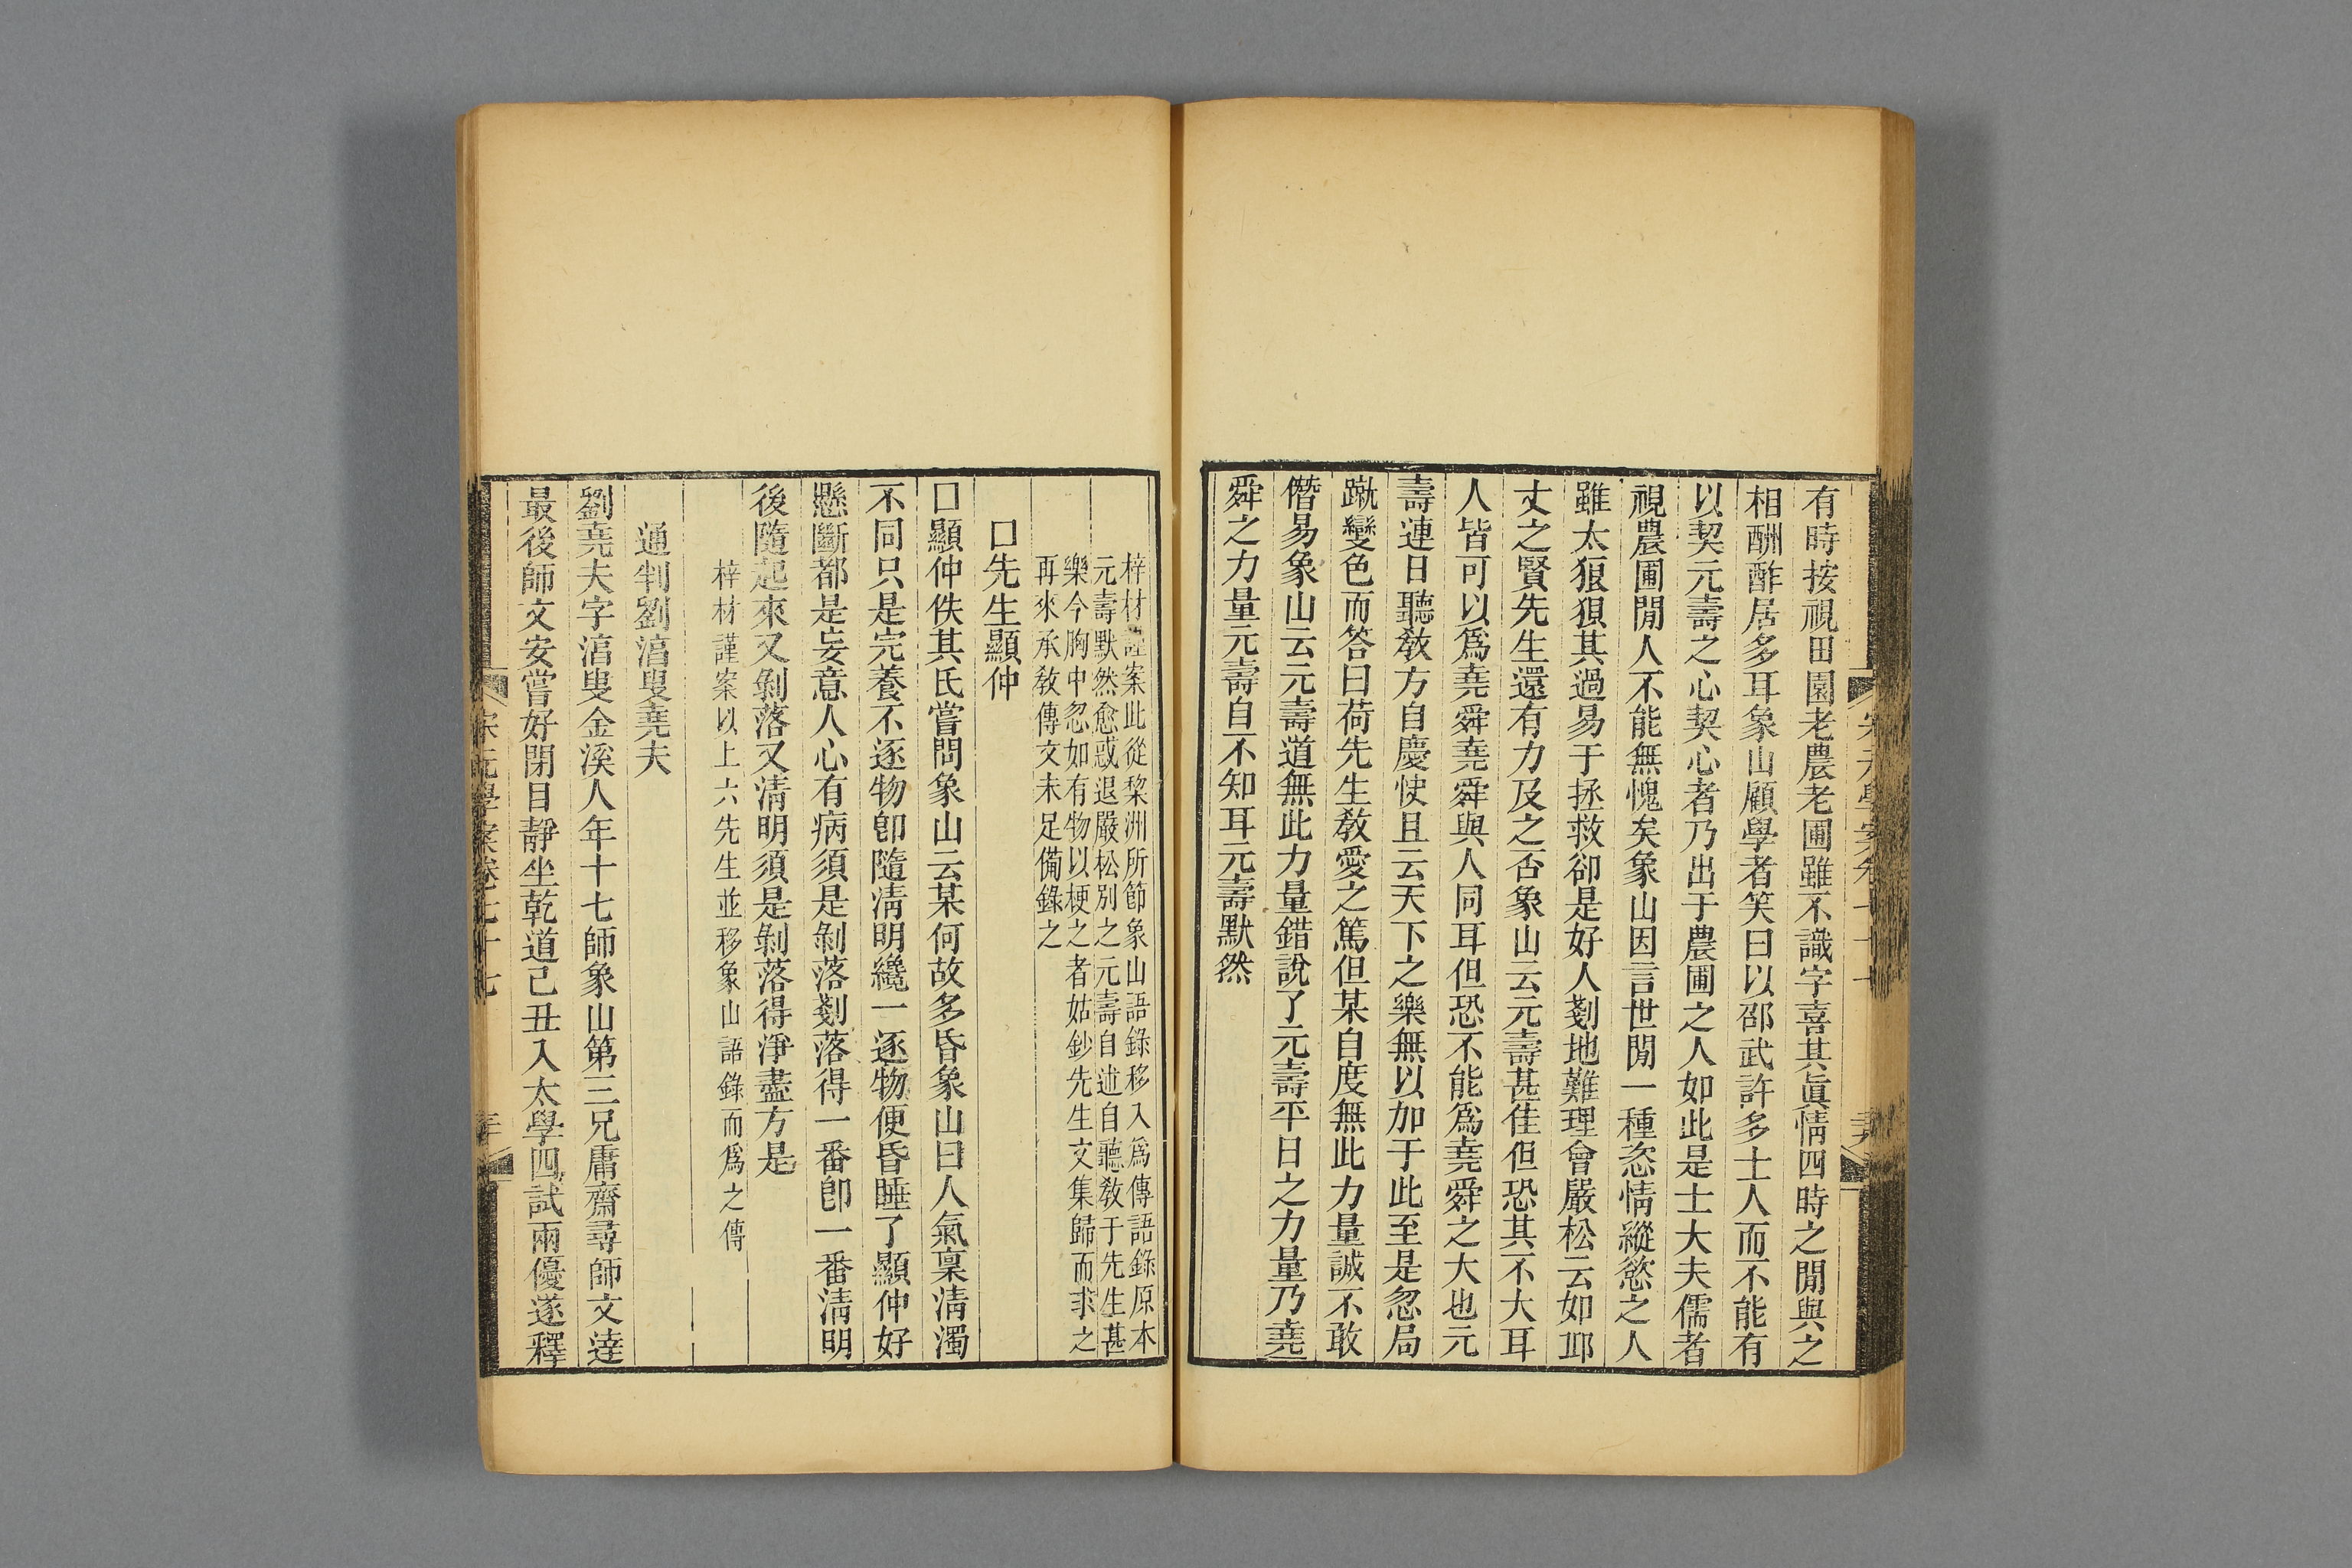 有時按視田園老農老圃雖不識字喜其眞情四時之閒與之
相酬酢居多耳象山顧學者笑曰以邵武許多士人而不能有
以契元壽之心契心者乃出于農圃之人如此是士大夫儒者
視農圃閒人不能無愧矣象山因言世閒一種恣情縱慾之人
雖太狼狽其過易于拯救卻是好人剗地難理會嚴松云如邱
丈之賢先生還有力及之否象山云元壽甚佳但恐其不大耳
人皆可以爲堯舜堯舜與人同耳但恐不能爲堯舜之大也元
壽連日聽敎方自慶快且云天下之樂無以加于此至是忽局
蹴變色而答曰荷先生敎愛之篤但某自度無此力量誠不敢
僭易象山云元壽道無此力量錯說了元壽平日之力量乃堯
舜之力量元壽自不知耳元壽默然
梓材謹案此從棃洲所節象山語錄移入爲傳語錄原本
元壽默然愈惑退嚴松別之元壽自述自聽敎于先生甚
樂今胸中忽如有物以梗之者姑鈔先生文集歸而求之
再來承敎傳文未足備錄之
口先生顯仲
口顯仲佚其氏嘗問象山云某何故多昏象山曰人氣稟淸濁
不同只是完養不逐物卽隨淸明纔一逐物便昏睡了顯仲好
懸斷都是妄意人心有病須是剝落剗落得一番卽一番淸明
後隨起來又剝落又淸明須是剝落得淨盡方是
梓材謹案以上六先生並移象山語錄而爲之傳
通判劉㵂叟堯夫
劉堯夫字㵂叟金溪人年十七師象山第三兄庸齋尋師文達
最後師文安嘗好閉目靜坐乾道己丑入太學四試兩優遂釋
宋元學案卷七十七